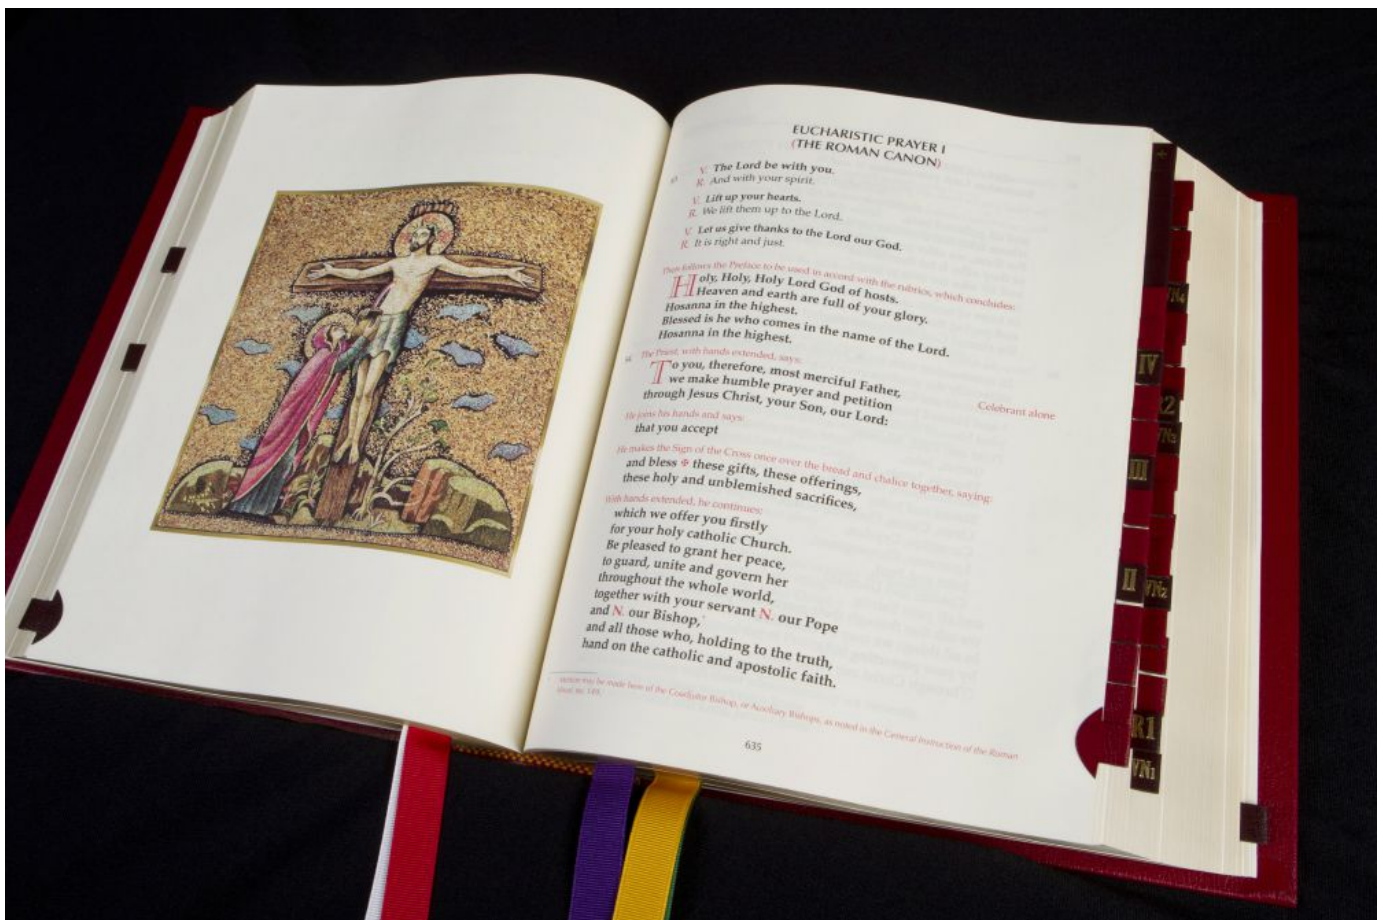 EUCHARISTIC PRAYER I
(THE ROMAN CANON)
V. The Lord be with you.
R. And with your spirit.
V. Lift up your hearts.
R. We lift them up to the Lord.
V. Let us give thanks to the Lord our God.
R. It is right and just.
Then follows the Preface to be used in accord with the rubrics, which concludes:
Holy, Holy, Holy Lord God of hosts.
Heaven and earth are full of your glory.
Hosanna in the highest.
Blessed is he who comes in the name of the Lord.
Hosanna in the highest.
The Priest, with hands extended, says:
To you, therefore, most merciful Father,
we make humble prayer and petition
through Jesus Christ, your Son, our Lord:
Celebrant alone
He joins his hands and says:
that you accept
He makes the Sign of the Cross once over the bread and chalice together, saying:
and bless ✠ these gifts, these offerings,
these holy and unblemished sacrifices,
With hands extended, he continues:
which we offer you firstly
for your holy catholic Church.
Be pleased to grant her peace,
to guard, unite and govern her
throughout the whole world,
together with your servant N. our Pope
and N. our Bishop,*
and all those who, holding to the truth,
hand on the catholic and apostolic faith.
may be made here of the Coadjutor Bishop, or Auxiliary Bishops, as noted in the General Instruction of the Roman
no. 149.
635
VN4
IV
R2
VN3
III
II
VN2
R1
VN1